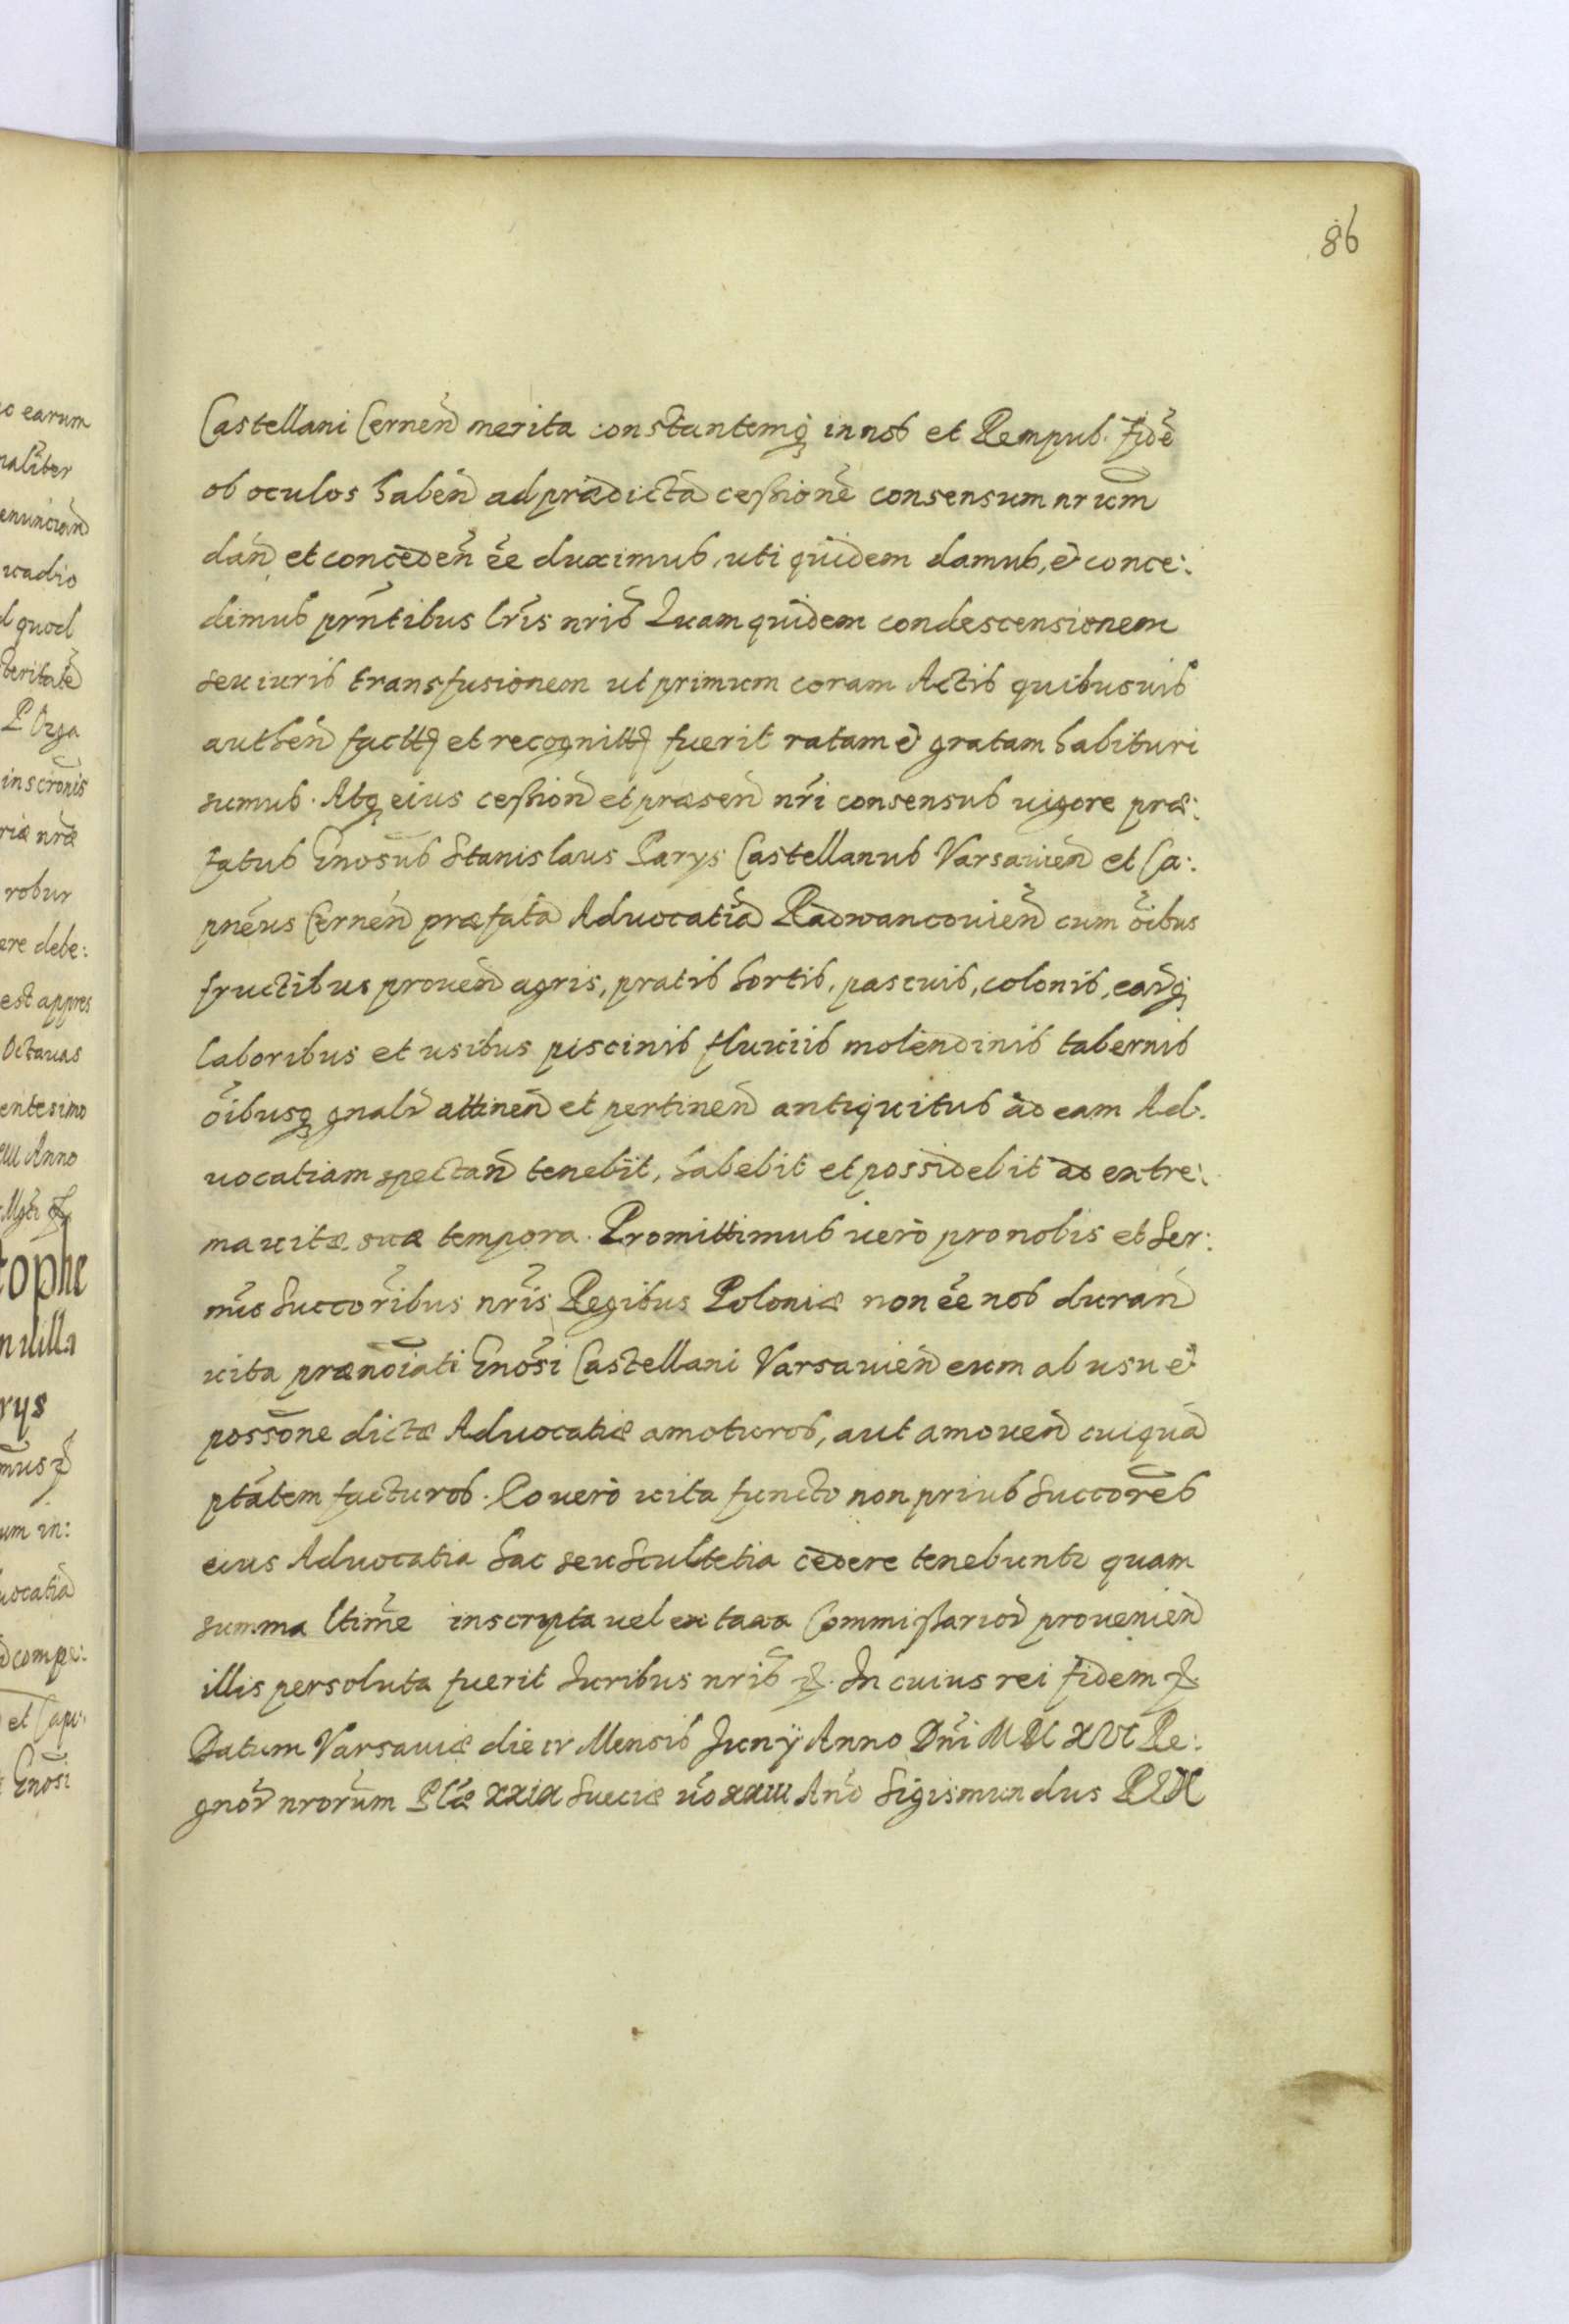 86
Castellani Cernen̄ merita constantemq; in nob et Rempub. fidē
ob oculos haben̄ ad prædictā ceſsionē consensum nrum
dan̄ et conceden̄ ēe duximus, uti quidem damus, et conce:
dimus prn̄tibus lr̄is nris Quam quidem condescensionem
seu iuris transfusionem ut primum coram Actis quibusuis
authen̄ factū et recognitū fuerit ratam et gratam habituri
sumus. Atq; eius ceſsion̄ et præsen̄ nr̄i consensus uigore præ:
fatus Gnosus Stanislaus Parys Castellanus Varsauien̄ et Ca:
pnēus Cernen̄ præfatā Aduocatiā Radwancouien̄ cum oībus
fructibus prouen̄ agris, pratis hortis, pascuis, colonis, earq;
laboribus et usibus piscinis fluuiis molendinis tabernis
oībusq; gnalr̄ attinen̄ et pertinen̄ antiquitus ad eam Ad:
uocatiam spectan̄ tenebit, habebit et possidebit ad extre:
ma uitæ suæ tempora. Promittimus uero pro nobis et Ser:
mis Succoribus nr̄is Regibus Poloniæ non ēe nos duran̄
uita prænoīati Gnosi Castellani Varsauien̄ eum ab usu et
possone dictæ Aduocatiæ amoturos, aut amouen̄ cuiquā
ptātem facturos. Eo uero uita functo non prius Succores
eius Aduocatia hac seu Scultetia cedere tenebuntr quam
summa ltime inscripta uel ex taxa Commiſsarior prouenien̄
illis persoluta fuerit Iuribus nris &. In cuius rei fidem &.
Datum Varsauiæ die IV Mensis Junÿ Anno Dn̄i MDCXVI Re:
gnor nrorum Plæ XXIX Sueciæ uo XXIII Anno Sigismundus REX
c earum
naliter
enuncian̄
uadio
d quod
teritatē
P Orga
inscronis
riæ nræ
robur
ere debe:
est appres
Octauas
entesimo
Anno
tophe
n uilla
rys
mus &
um in:
uocatiā
compe:
et Capi:
Gnosi